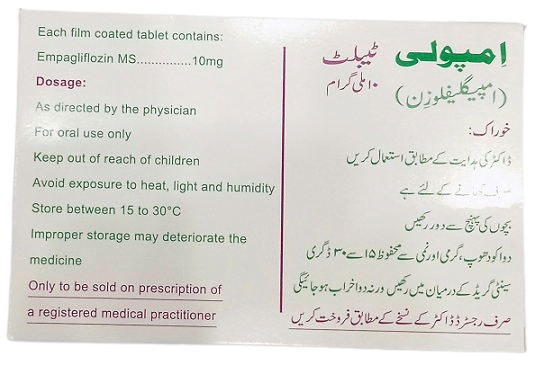 Each film coated tablet contains:
Empagliflozin MS..............10mg
Dosage:
As directed by the physician
For oral use only
Keep out of reach of children
Avoid exposure to heat, light and humidity
Store between 15 to 30°C
Improper storage may deteriorate the
medicine
Only to be sold on prescription of
a registered medical practitioner
اِمپولی ٹیبلٹ
(امپیگلیفلوزن) ۱۰ ملی گرام
خوراک:
ڈاکٹر کی ہدایت کے مطابق استعمال کریں
صرف کھانے کے لئے ہے
بچوں کی پہنچ سے دور رکھیں
دوا کو دھوپ، گرمی اور نمی سے محفوظ ۱۵ سے ۳۰ ڈگری
سینٹی گریڈ کے درمیان میں رکھیں ورنہ دوا خراب ہو جائیگی
صرف رجسٹرڈ ڈاکٹر کے نسخے کے مطابق فروخت کریں